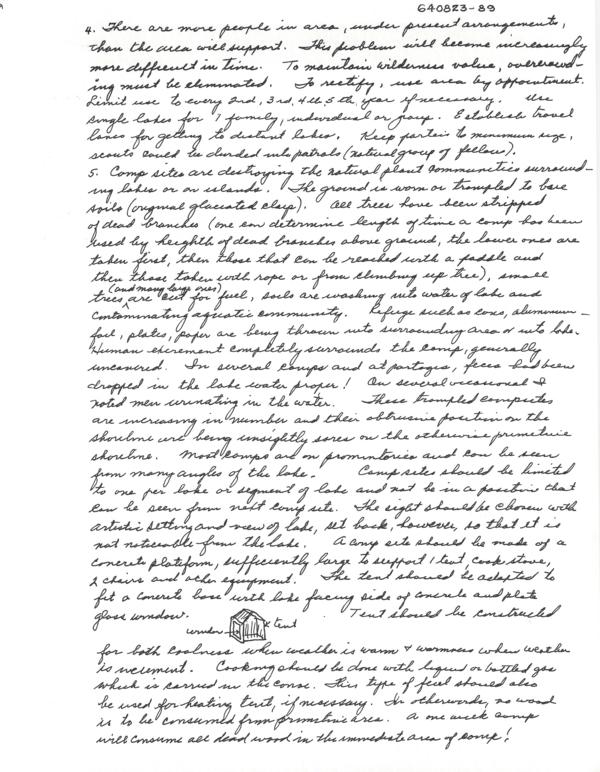 640823-89
4. There are more people in area, under present arrangements,
than the area will support. This problem will become increasingly
more difficult in time. To maintain wilderness value, overcrowd-
ing must be eliminated. To rectify, use area by appointment.
Limit use to every 2nd, 3rd, 4th, 5th year if necessary. Use
single lakes for 1 family, individual or group. Establish travel
lanes for getting to distant lakes. Keep parties to minimum size,
scouts could be divided into patrols (natural group of fellows).
5. Camp sites are destroying the natural plant communities surround-
ing lakes or on islands. The ground is worn or trampled to bare
soils (original glaciated clays). All trees have been stripped
of dead branches (one can determine length of time a camp has been
used by heighth of dead branches above ground, the lower ones are
taken first, then those that can be reached with a paddle and
then those taken with rope or from climbing up tree), small
trees (and many large ones) are cut for fuel, soils are washing into water of lake and
contaminating aquatic community. Refuge such as cans, aluminum-
foil, plates, paper are being thrown into surrounding area or into lake.
Human excrement completely surrounds the camp, generally
uncovered. In several camps and at portages, feces had been
dropped in the lake water proper! On several occasions I
noted men urinating in the water. These trampled campsites
are increasing in number and their obtrusive position on the
shoreline are being unsightly sores on the otherwise primitive
shoreline. Most camps are on promontories and can be seen
from many angles of the lake. Camp sites should be limited
to one per lake or segment of lake and not be in a position that
can be seen from next camp site. The sight should be chosen with
artistic setting and view of lake, set back, however, so that it is
not noticeable from the lake. A camp site should be made of a
concrete platform, sufficiently large to support 1 tent, cook stove,
2 chairs and other equipment. The tent should be adapted to
fit a concrete base with lake facing side of concrete and plate
glass window. Tent should be constructed
window tent
for both coolness when weather is warm & warmness when weather
is inclement. Cooking should be done with liquid or bottled gas
which is carried in the canoe. This type of fuel should also
be used for heating tent, if necessary. In otherwords, no wood
is to be consumed from primitive area. A one week camp
will consume all dead wood in the immediate area of camp!